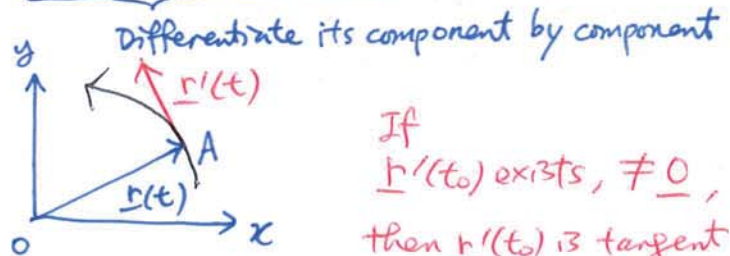 Differentiate its component by component
y
r'(t)
A
r(t)
O
x
If
r'(t₀) exists, ≠ 0,
then r'(t₀) is tangent